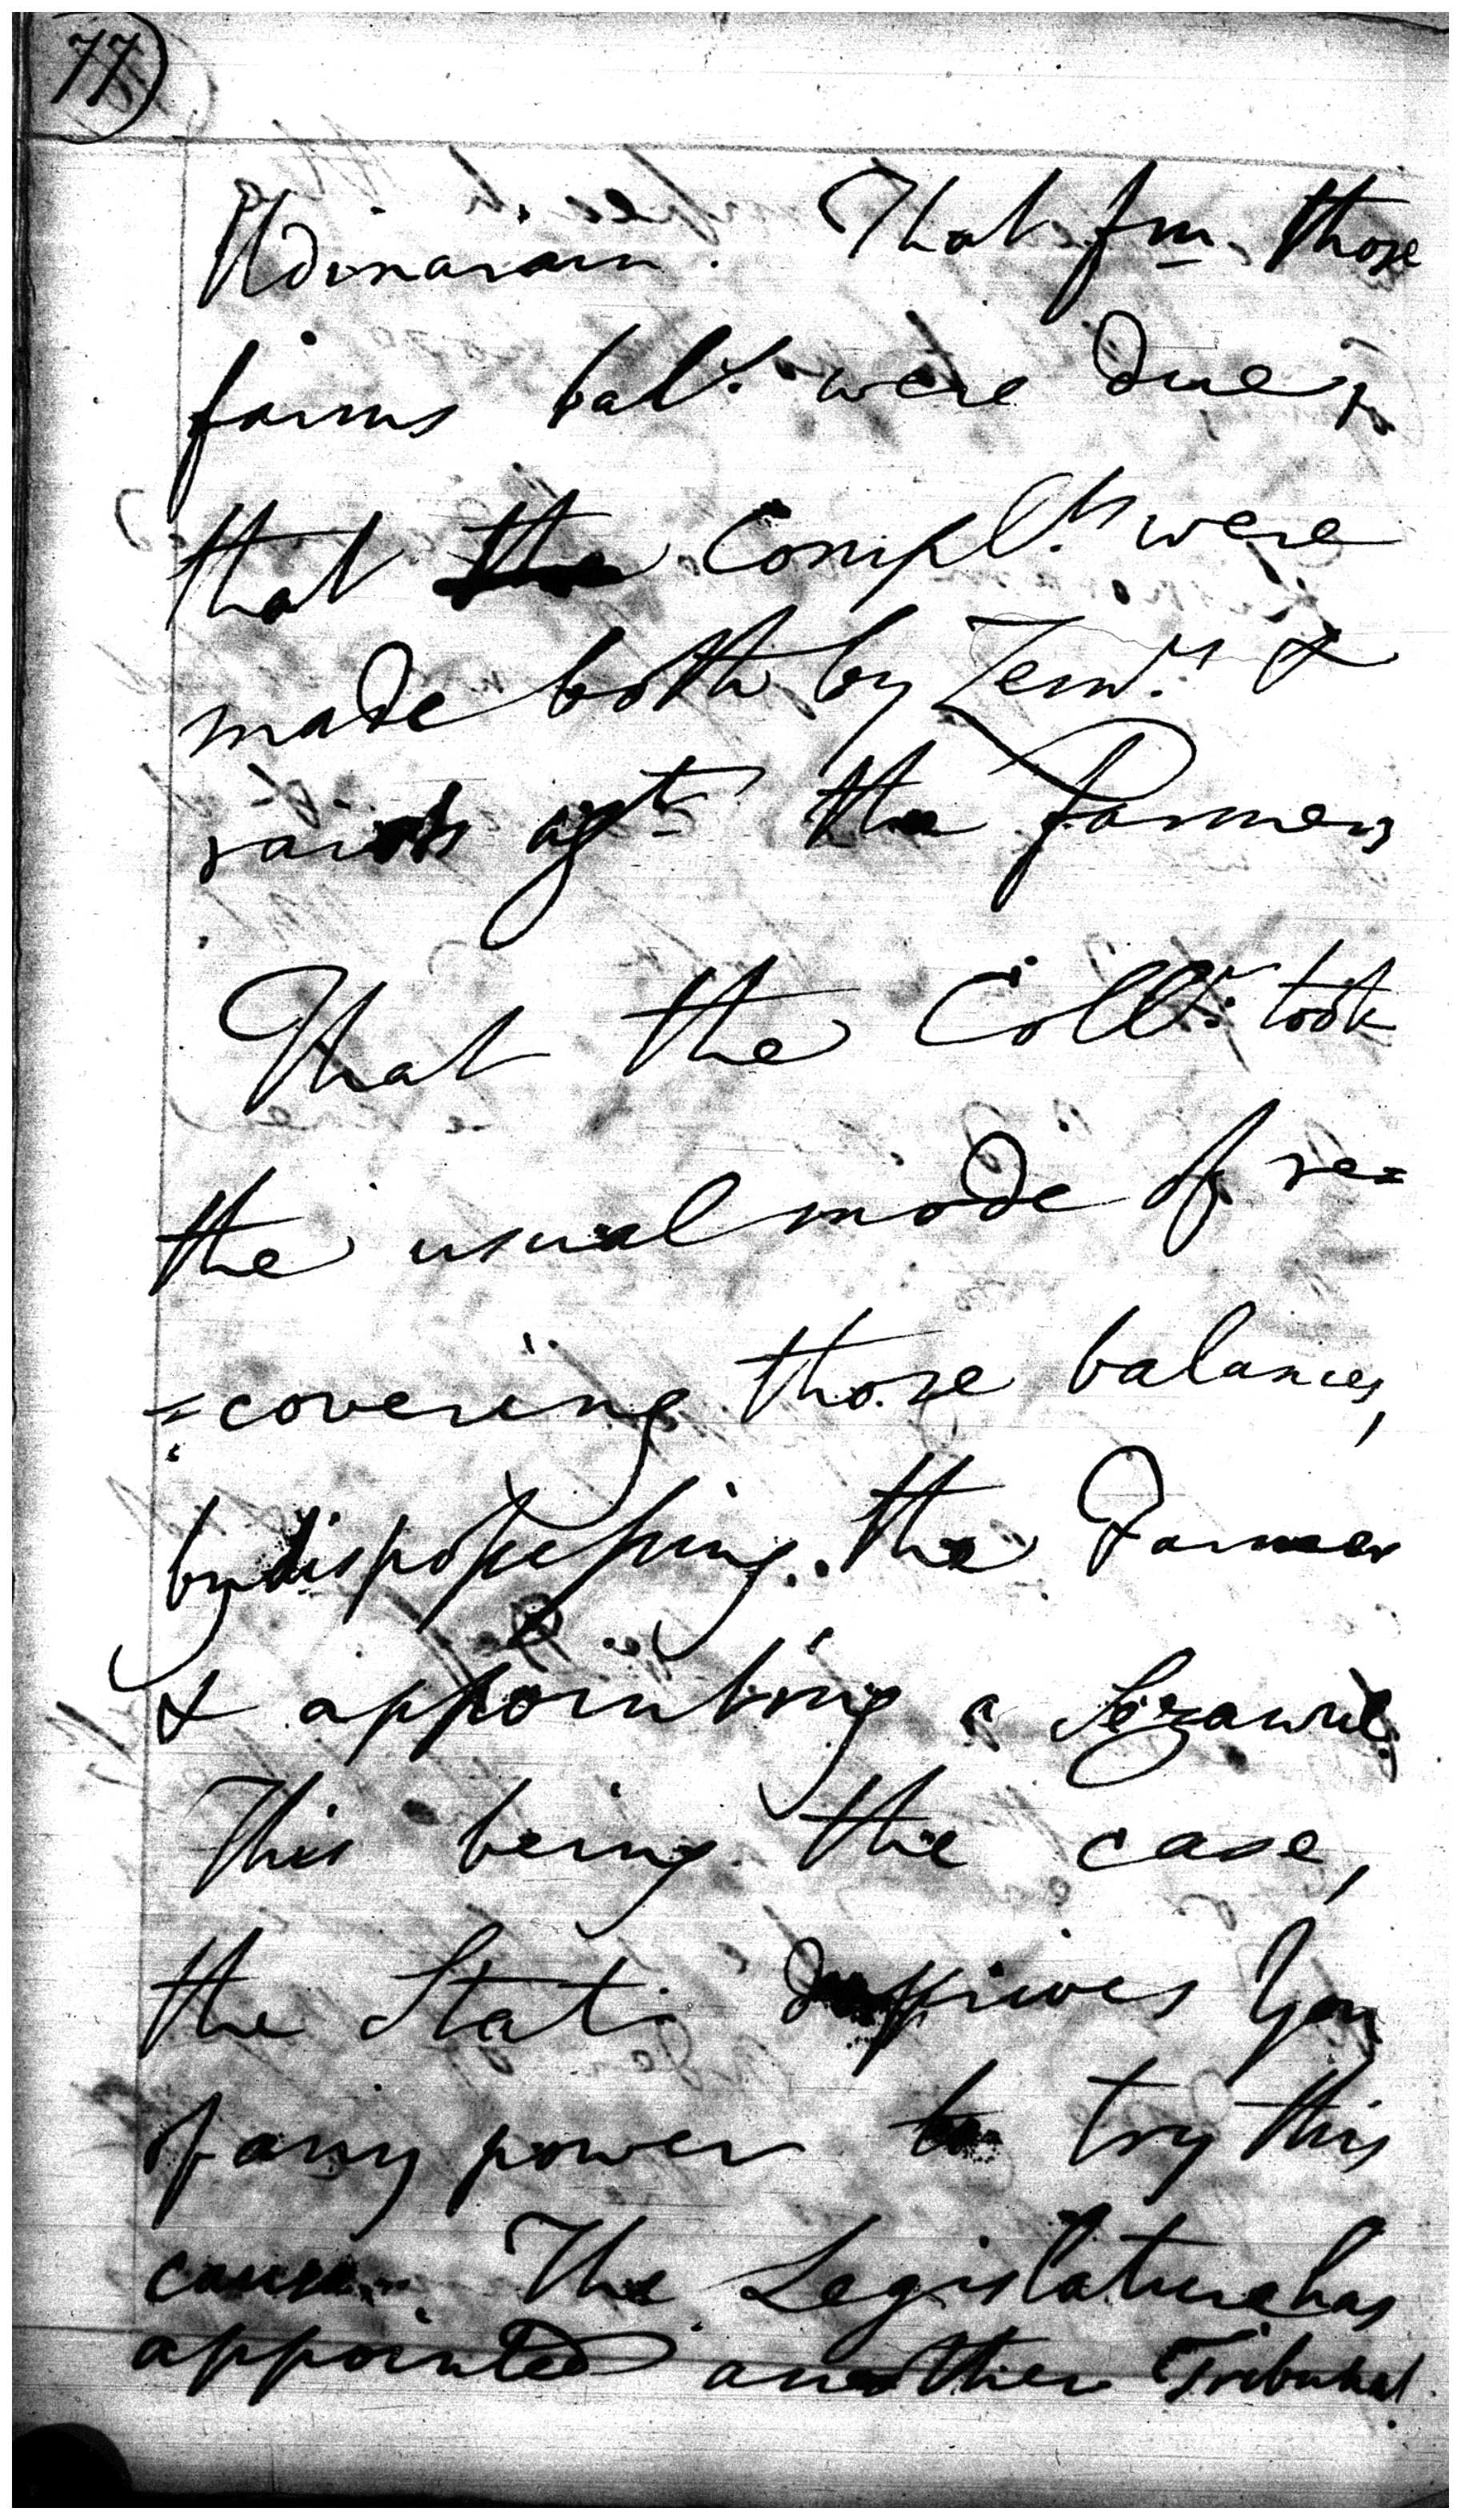 77
Udinarain. That fm. those
farms bals. were due,
that the Complts. were
made both by Zemrs. &
raiots agt. the Farmers
That the Collr. took
the usual mode of re=
=covering those balances,
by dispossessing the Farmer
& appointing a Sezawul.
This being the case,
the Stat: deprives You
of any power to try this
cause. The Legislature has
appointed another Tribunal.